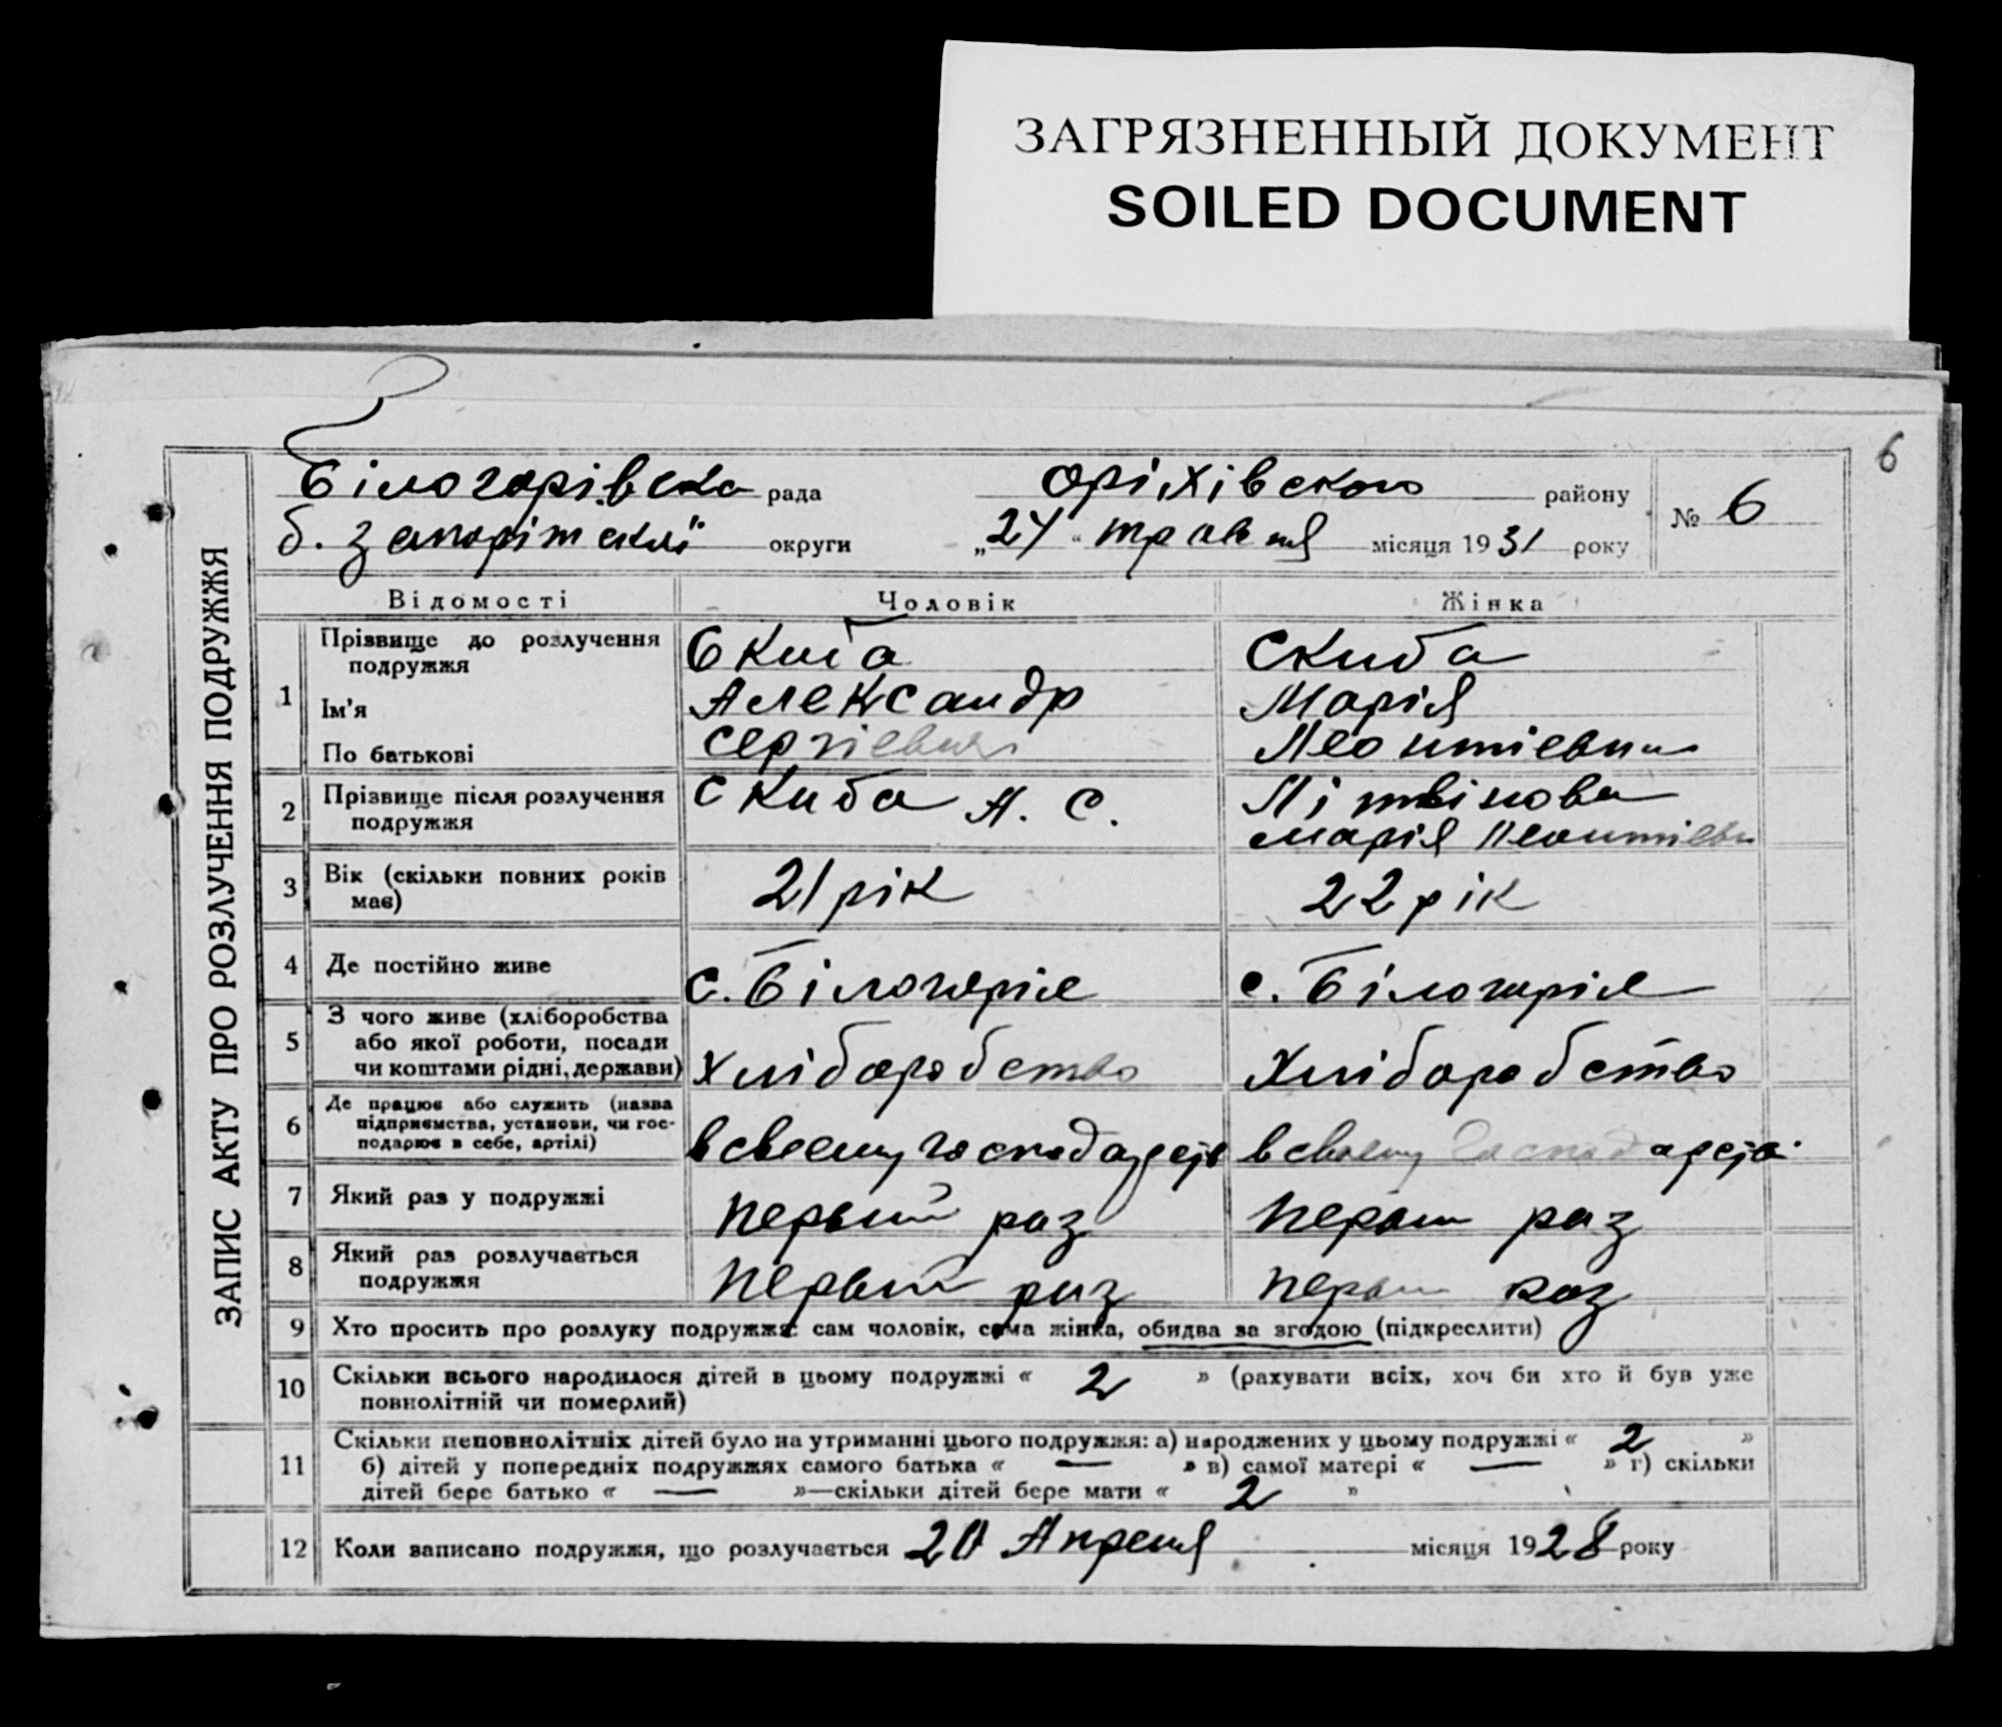 ЗАГРЯЗНЕННЫЙ ДОКУМЕНТ
SOILED DOCUMENT
6
ЗАПИС АКТУ ПРО РОЗЛУЧЕННЯ ПОДРУЖЖЯ
Білогорівска рада Оріхівского району № 6
б. Запоріжскої округи „24“ травня місяця 1931 року
Відомості Чоловік Жінка
1 Прізвище до розлучення подружжя Скиба Скиба
Ім'я Александр Марія
По батькові Сергіевич Леонтіевна
2 Прізвище після розлучення подружжя Скиба А. С. Літвінова
Марія Леонтіевн
3 Вік (скільки повних років має) 21 рік 22 рік
4 Де постійно живе с. Білогоріе с. Білогоріе
5 З чого живе (хліборобства
або якої роботи, посади
чи коштами рідні, держави) Хліборобство Хліборобство
6 Де працює або служить (назва
підприємства, установи, чи гос-
подарює в себе, артілі) в своему в своему
7 Який раз у подружжі первий раз перви раз
8 Який раз розлучається
подружжя первий раз перви раз
9 Хто просить про розлуку подружжя: сам чоловік, сама жінка, обидва за згодою (підкреслити)
10 Скільки всього народилося дітей в цьому подружжі « 2 » (рахувати всіх, хоч би хто й був уже
повнолітній чи померлий)
11 Скільки неповнолітніх дітей було на утриманні цього подружжя: а) народжених у цьому подружжі « 2 »
б) дітей у попередніх подружжях самого батька « — » в) самої матері « — » г) скільки
дітей бере батько « — »—скільки дітей бере мати « 2 »
12 Коли записано подружжя, що розлучається 20 Апреля місяця 1928 року